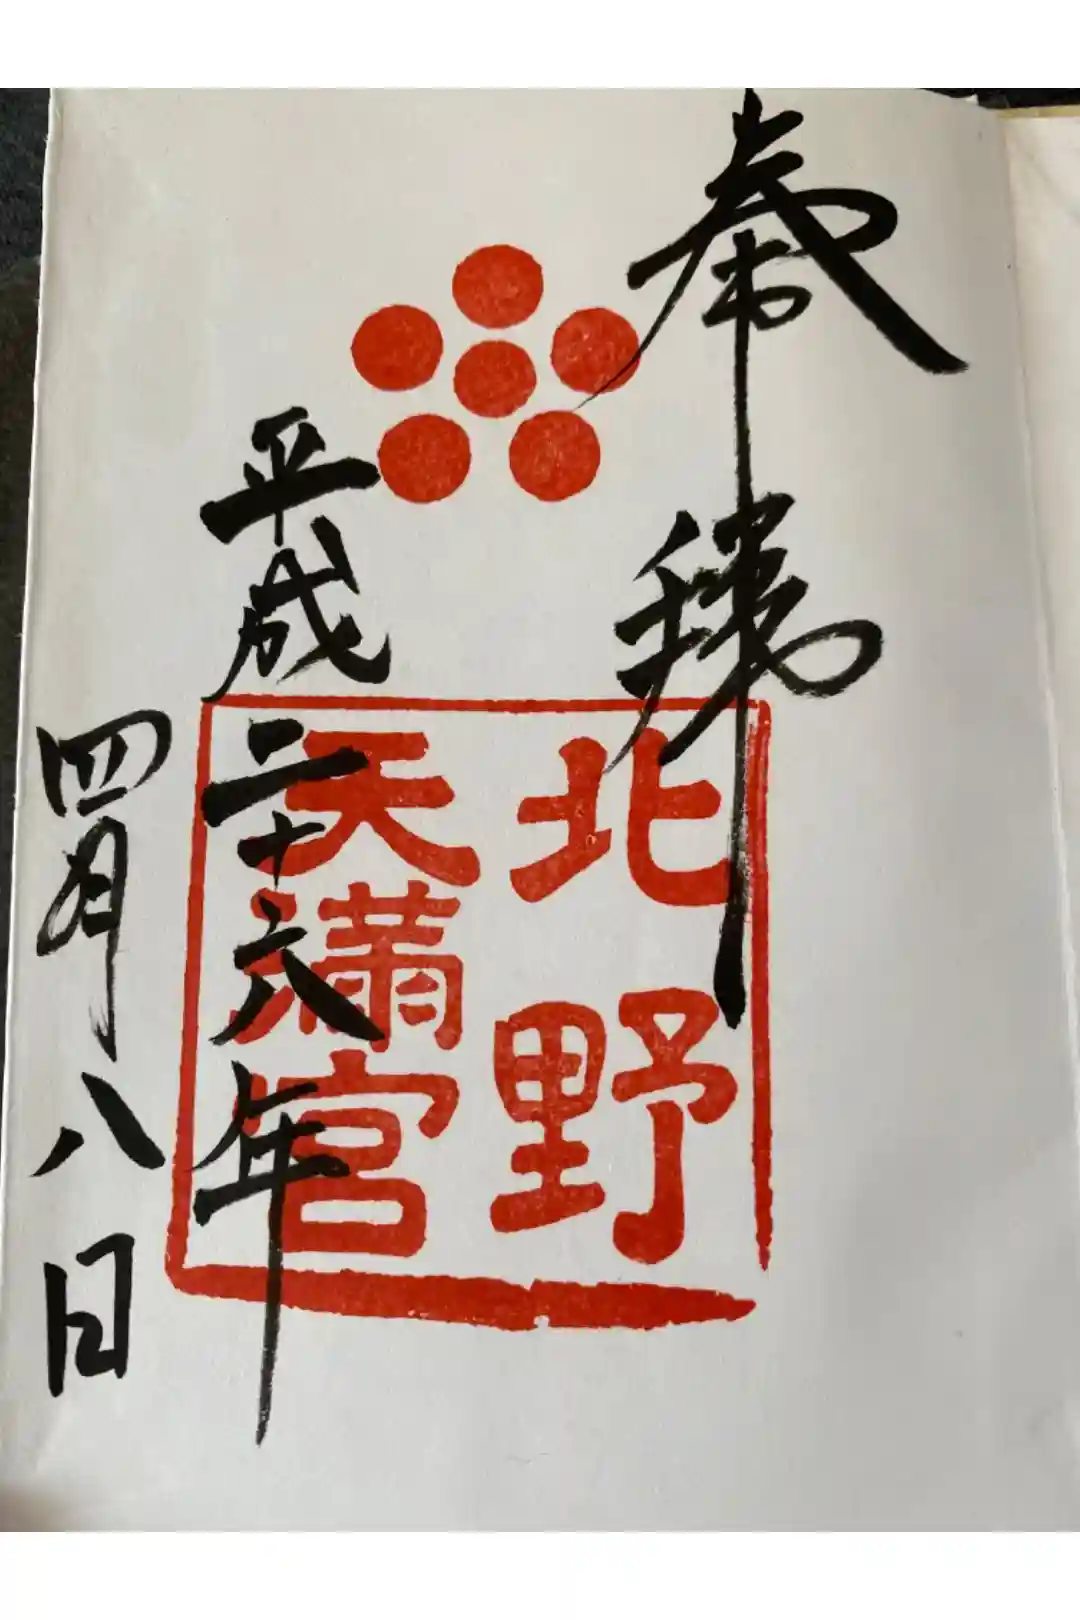 奉拝
北野
天満宮
平成二十六年
四月八日